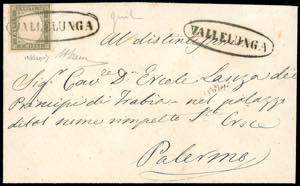 VALLELUNGA
VALLELUNGA
Al distintissimo
Sig.r Cav.e D. Ercole Lanza dei
Principi di Trabia nel palazzo
dital nome rimpetto S.ta Croce
Palermo